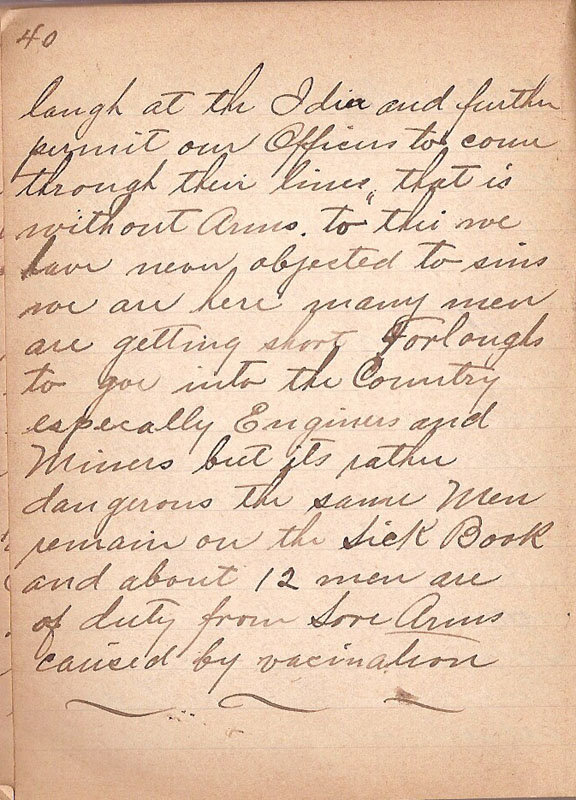 40
laugh at the Idia and further
permit our Officers to come
through their lines, that is
without Arms. to this we
have never objected to sins
we are here many men
are getting short Forloughs
to goe into the Country
especally Enginers and
Miners but its rather
dangerous the same Men
remain on the Sick Book
and about 12 men are
of duty from Sore Arms
caused by vacination